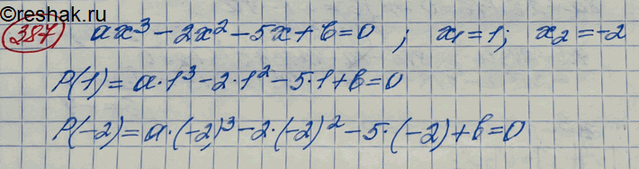 reshak.ru
387 ax³ - 2x² - 5x + b = 0 ; x₁ = 1; x₂ = -2
P(1) = a·1³ - 2·1² - 5·1 + b = 0
P(-2) = a·(-2)³ - 2·(-2)² - 5·(-2) + b = 0